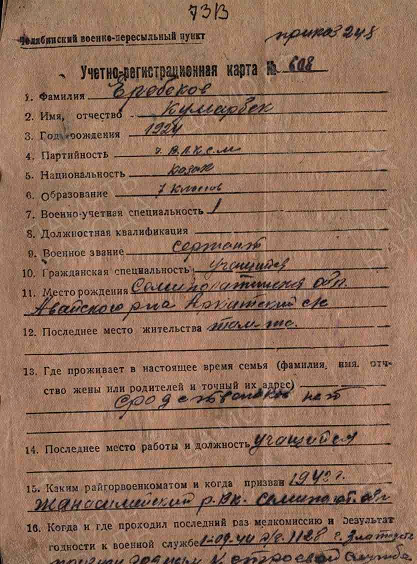 73В
Челябинский военно-пересыльный пункт
приказ 248
Учетно-регистрационная карта № 608
1. Фамилия Еробеков
2. Имя, отчество Кумарбек
3. Год рождения 1924
4. Партийность ч. ВЛКСМ
5. Национальность казах
6. Образование 7 классов
7. Военно-учетная специальность 1
8. Должностная квалификация
9. Военное звание сержант
10. Гражданская специальность учащийся
11. Место рождения Семипалатинская обл.
Абайского р-на
12. Последнее место жительства там-же.
13. Где проживает в настоящее время семья (фамилия, имя, отче-
ство жены или родителей и точный их адрес)
родственников нет
14. Последнее место работы и должность учащийся
15. Каким райгорвоенкоматом и когда призван 1942 г.
Жанасемейский р.в.к.
16. Когда и где проходил последний раз медкомиссию и результат
годности к военной службе 1-09.44 1128
к строевой службе